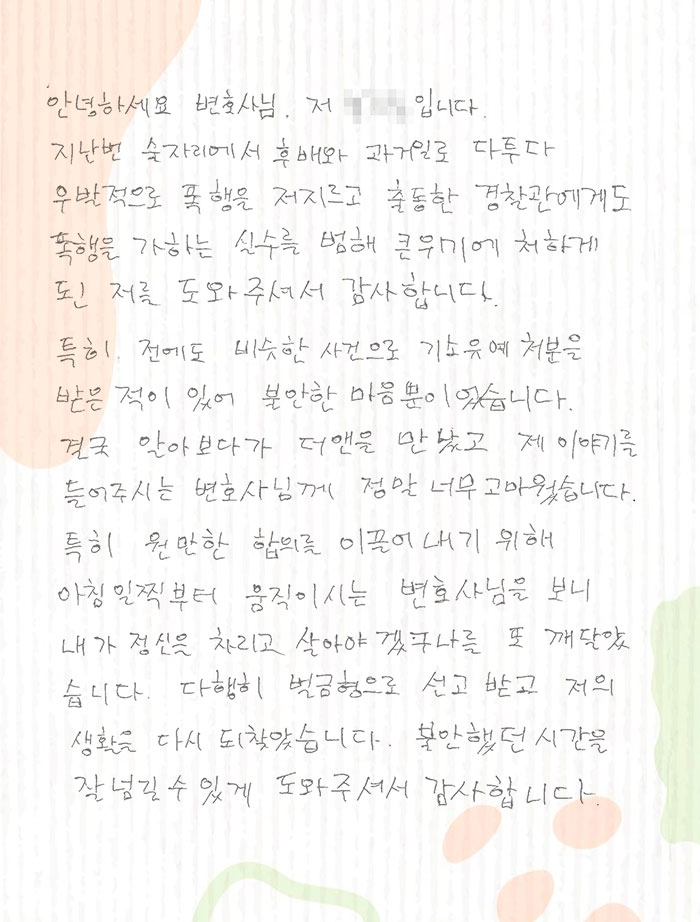 안녕하세요 변호사님. 저 입니다.
지난번 술자리에서 후배와 과거일로 다투다
우발적으로 폭행을 저지르고 출동한 경찰관에게도
폭행을 가하는 실수를 범해 큰위기에 처하게
된 저를 도와주셔서 감사합니다.
특히. 전에도 비슷한 사건으로 기소유예 처분을
받은 적이 있어 불안한 마음뿐이었습니다.
결국 알아보다가 더앤을 만났고 제 이야기를
들어주시는 변호사님께 정말 너무 고마웠습니다.
특히 원만한 합의를 이끌어내기 위해
아침 일찍부터 움직이시는 변호사님을 보니
내가 정신을 차리고 살아야겠구나를 또 깨달았
습니다. 다행히 벌금형으로 선고 받고 저의
생활을 다시 되찾았습니다. 불안했던 시간을
잘 넘길 수 있게 도와주셔서 감사합니다.